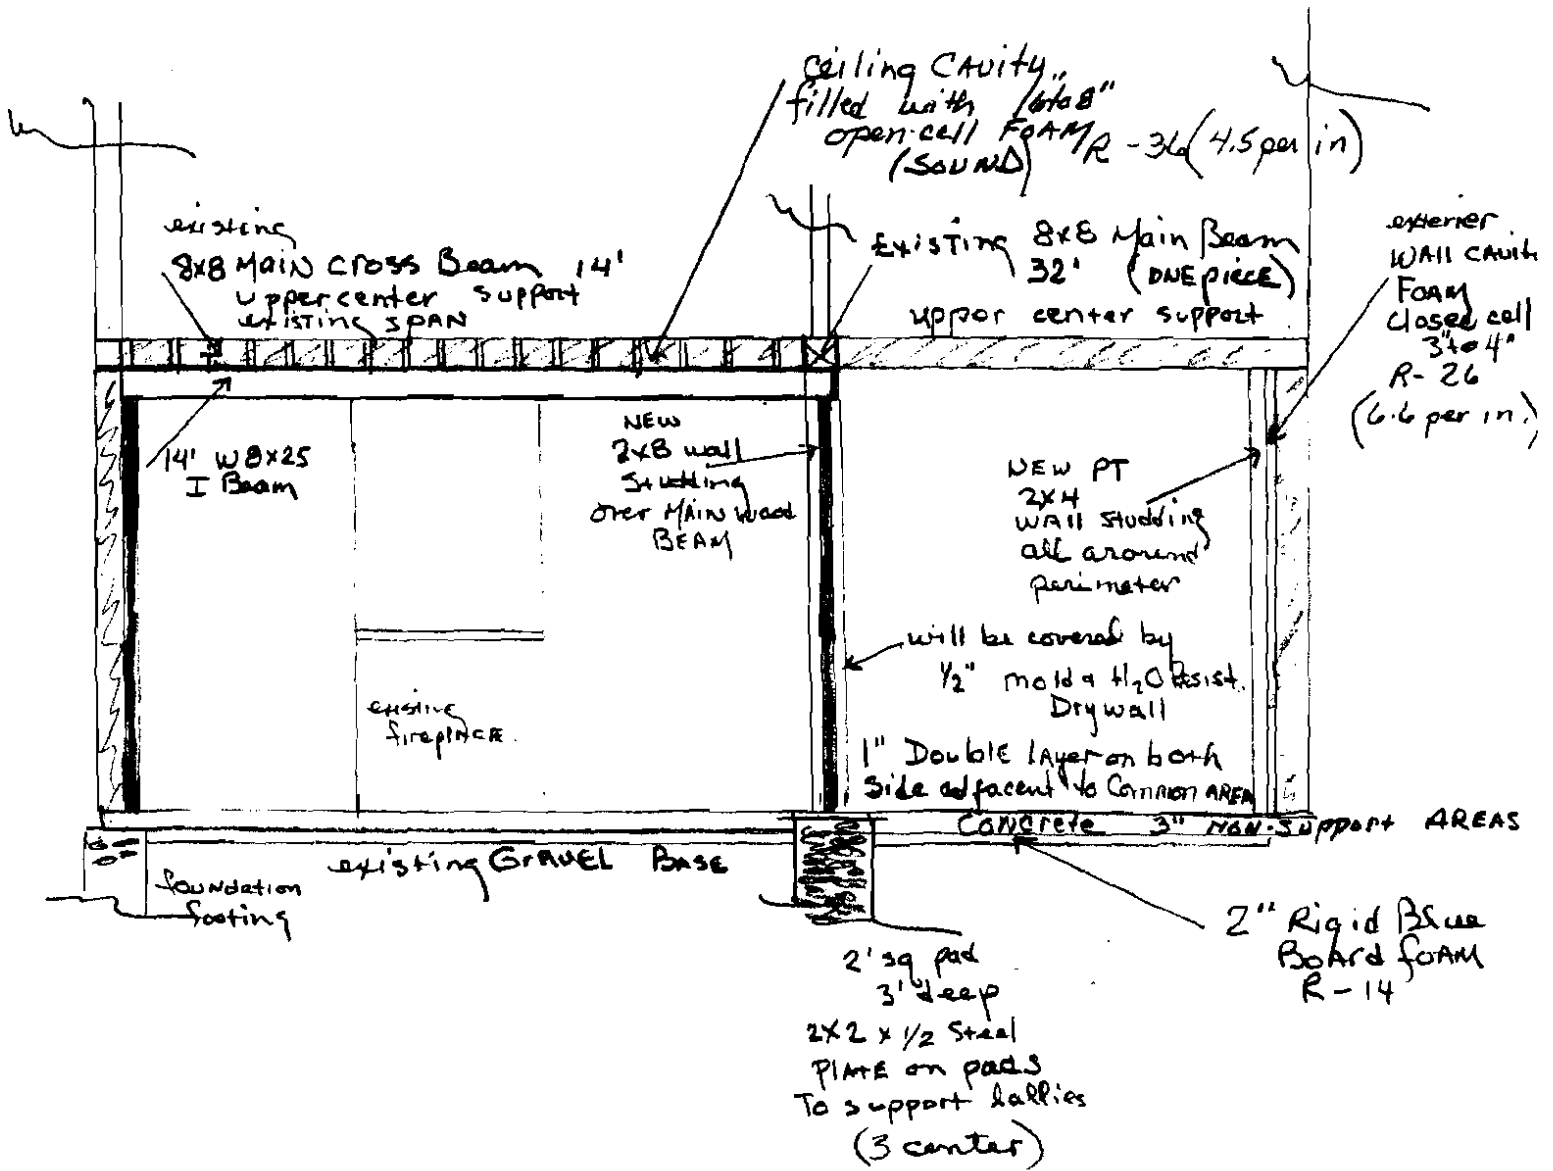 Ceiling CAVITY
filled with 6"to8"
open-cell FOAM
(SOUND)
R-36 (4.5 per in)
existing
8x8 MAIN CROSS BEAM 14'
upper center support
existing SPAN
EXISTING 8x8 Main Beam
32' (ONE piece)
upper center support
exterier
WALL CAVIT
FOAM
closed cell
3"to4"
R-26
(6.6 per in.)
14' W8x25
I Beam
NEW
2x8 wall
Studding
over MAIN wood
BEAM
NEW PT
2x4
WALL studding
all around
perimeter
will be covered by
1/2" mold & H2O Resist.
Drywall
1" Double layer on both
side adjacent to Common AREA
existing
firePLACE
Concrete 3" NON-Support AREAS
existing GRAVEL BASE
foundation
footing
2" Rigid Blue
Board foAM
R-14
2' sq pad
3' deep
2x2 x 1/2 Steel
PLATE on pads
To support lallies
(3 center)